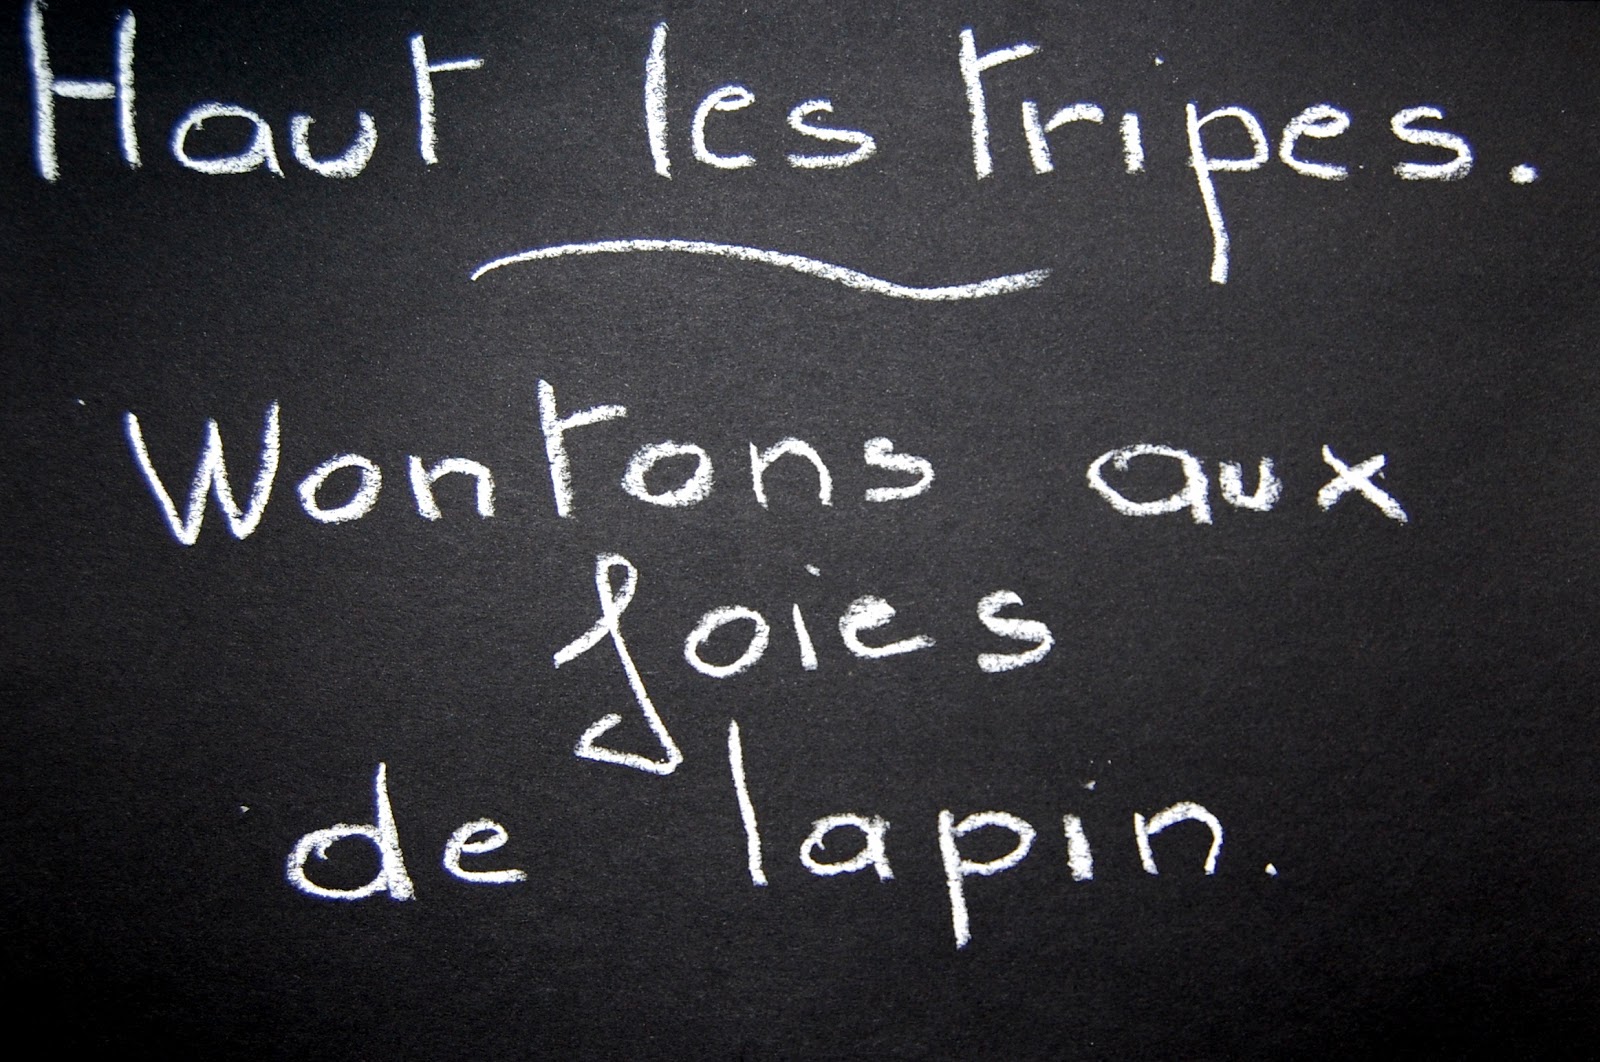 Haut les tripes.
Wontons aux
foies
de lapin.